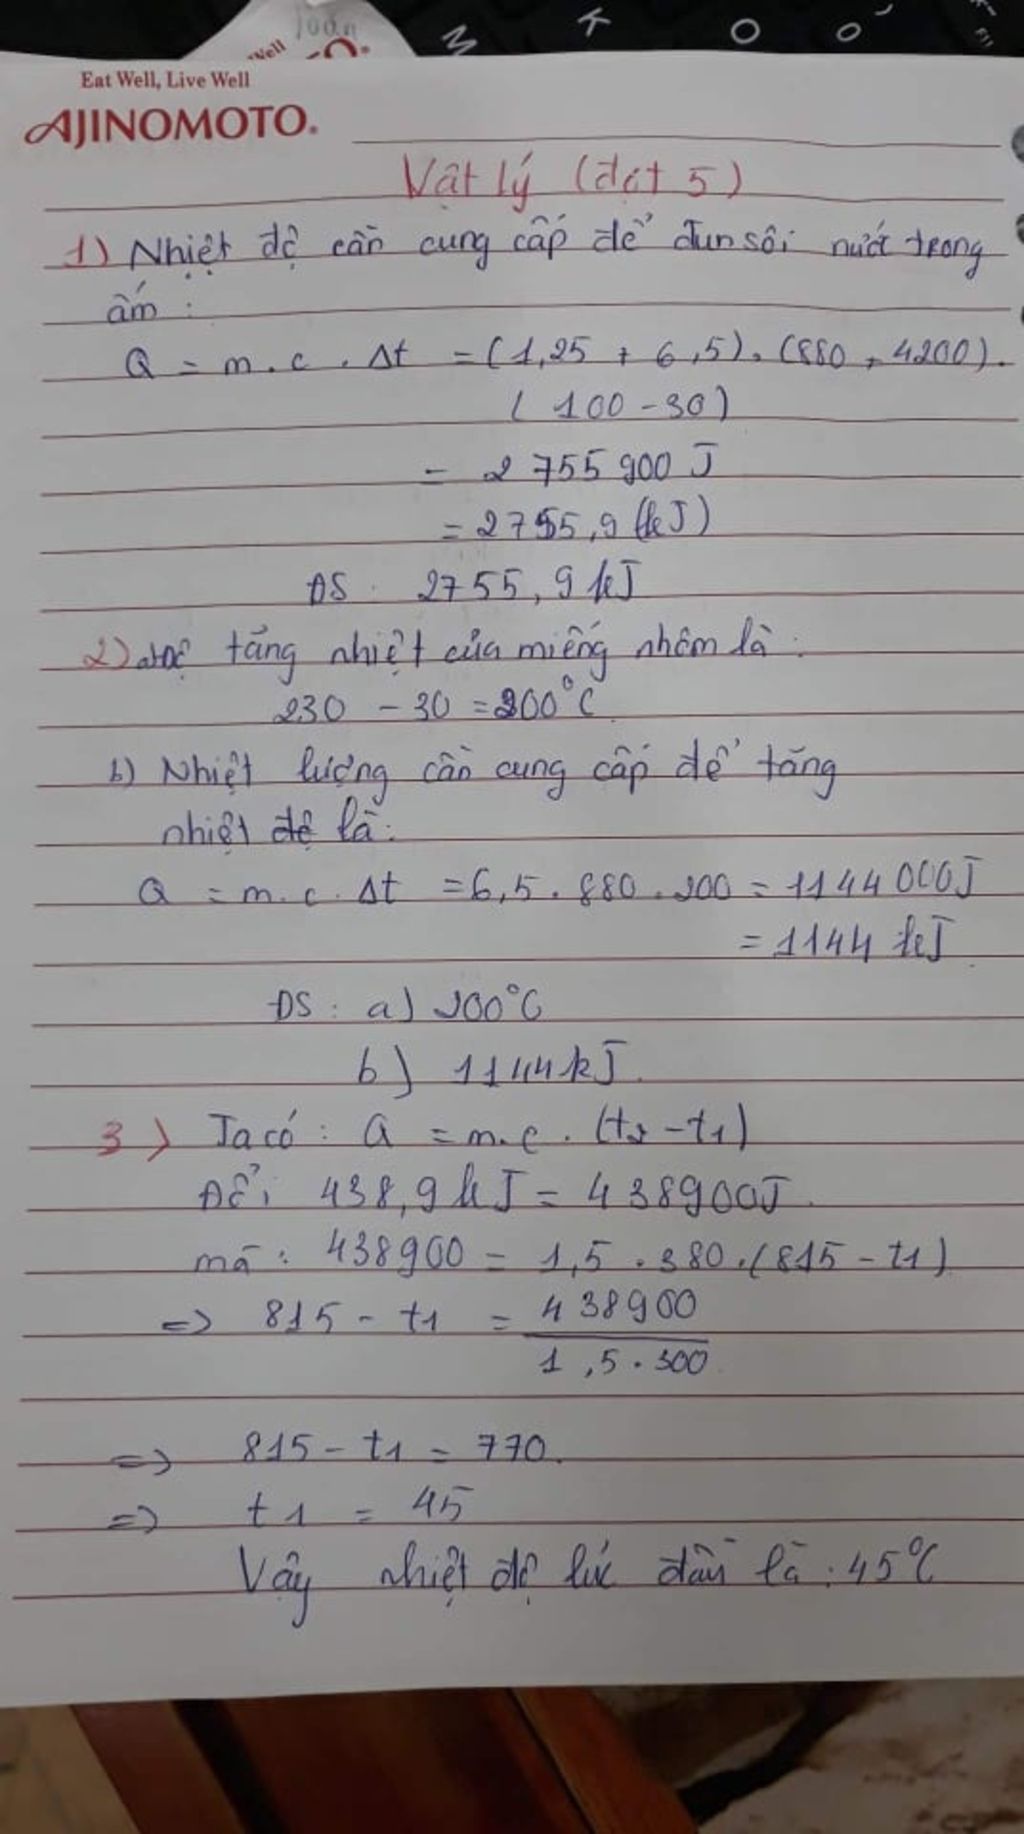 100
Well
M K O O
Eat Well, Live Well
AJINOMOTO.
Vật lý (đợt 5)
1) Nhiệt độ cần cung cấp để đun sôi nước trong
ấm :
Q = m.c.Δt = (1,25 + 6,5).(880 + 4200).
(100-30)
= 2 755 900 J
= 2755,9 (kJ)
ĐS : 2755,9 kJ
2) độ tăng nhiệt của miếng nhôm là :
230 - 30 = 200°C
b) Nhiệt lượng cần cung cấp để tăng
nhiệt độ là:
Q = m.c.Δt = 6,5.880.200 = 1144 000J
= 1144 kJ
ĐS : a) 200°C
b) 1144kJ.
3) Ta có : Q = m.c.(t2-t1)
Đổi 438,9 kJ = 438900J.
mà : 438900 = 1,5.380.(815-t1)
=> 815 - t1 = 438900
1,5.300
=> 815 - t1 = 770.
=> t1 = 45
Vậy nhiệt độ lúc đầu là : 45°C